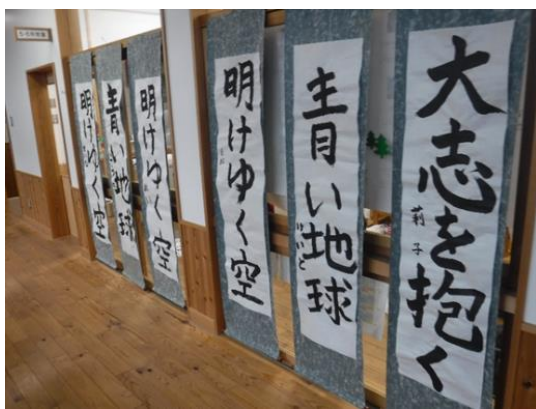 大志を抱く
莉子
青い地球
けいと
明けゆく空
明けゆく空
青い地球
明けゆく空